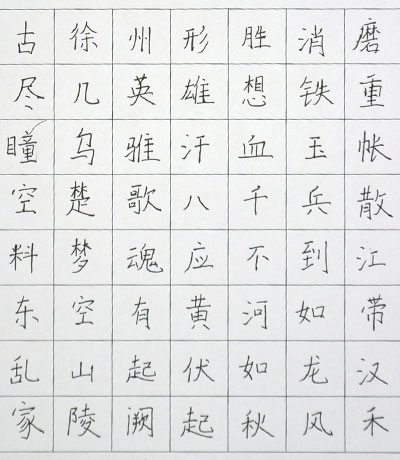 古徐州形胜消磨
尽几英雄想铁重
瞳乌骓汗血玉帐
空楚歌八千兵散
料梦魂应不到江
东空有黄河如带
乱山起伏如龙汉
家陵阙起秋风禾